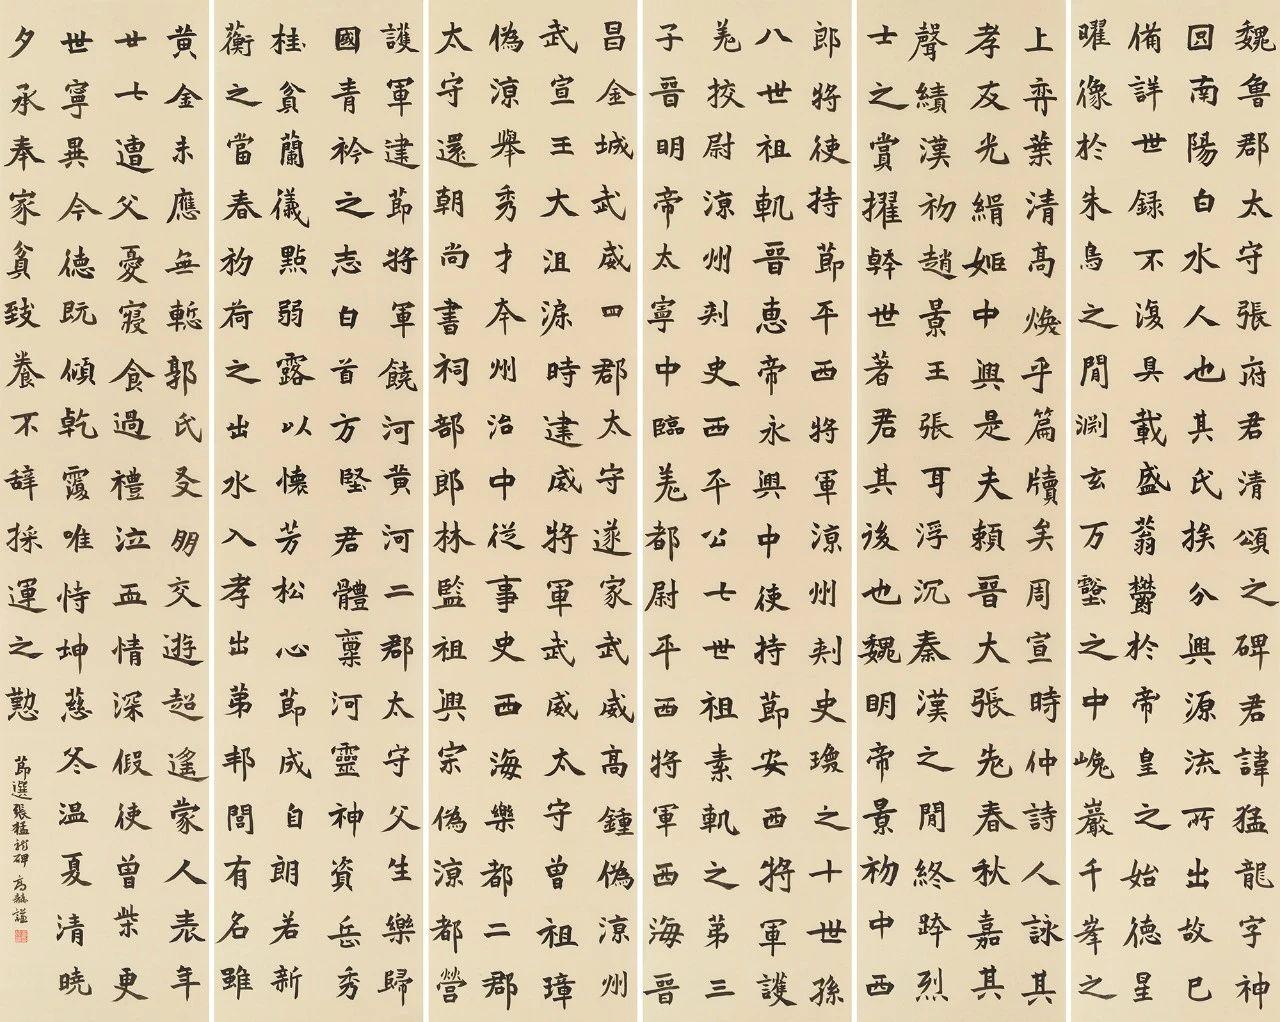 魏魯郡太守張府君清頌之碑君諱猛龍字神
囩南陽白水人也其氏挨分興源流所出故已
備詳世録不復具載盛蓊鬱於帝皇之始德星
曜像於朱鳥之閒淵玄万壑之中巉巖千峯之
上弈葉清高煥乎篇牘矣周宣時仲詩人詠其
孝友光緝姬中興是夫賴晉大張老春秋嘉其
聲績漢初趙景王張耳浮沉秦漢之閒終跨烈
士之賞擢幹世著君其後也魏明帝景初中西
郎將使持節平西將軍涼州刺史瓊之十世孫
八世祖軌晉惠帝永興中使持節安西將軍護
羌挍尉涼州刺史西平公七世祖素軌之第三
子晉明帝太寧中臨羌都尉平西將軍西海晉
昌金城武威四郡太守遂家武威高鍾偽涼州
武宣王大沮渠時建威將軍武威太守曾祖璋
偽涼舉秀才本州治中從事史西海樂都二郡
太守還朝尚書祠部郎林監祖興宗偽涼都營
護軍建節將軍饒河黃河二郡太守父生樂歸
國青衿之志白首方堅君體稟河靈神資岳秀
桂貧蘭儀點弱露以懷芳松心節成自朗若新
蘅之當春初荷之出水入孝出第邦閭有名雖
黃金未應無慙郭氏友朋交遊超遙蒙人表年
廿七遭父憂寢食過禮泣血情深假使曾柴更
世寧異今德既傾乾覆唯恃坤慈冬温夏清曉
夕承奉家貧致養不辭採運之懃
節選張猛龍碑 高